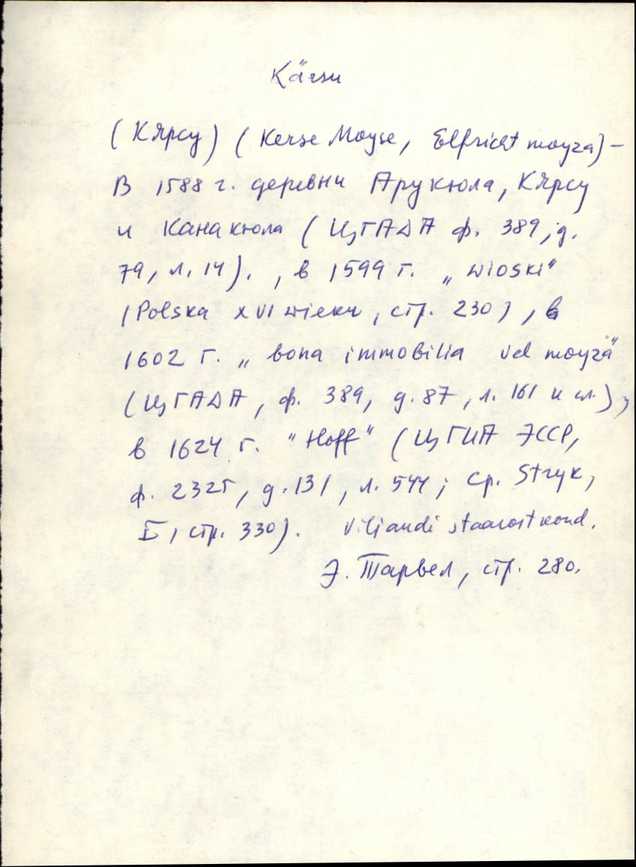 Kärsu
(Кярсу) (Kerse Moyse, Elfricht moyza) –
В 1588 г. деревни Арукюла, Кярсу
и Канакюла (ЦГАДА ф. 389, д.
79, л. 14)., в 1599 г. „wioski"
(Polska XVI wieku, стр. 230), в
1602 г. „bona immobilia vel moyza"
(ЦГАДА, ф. 389, д. 87, л. 161 и сл.),
в 1624 г. "Hoff" (ЦГИА ЭССР,
ф. 2325, д. 131, л. 544; ср. Stryk,
I, стр. 330). Viljandi staarostkond.
Э. Тарвел, стр. 280.